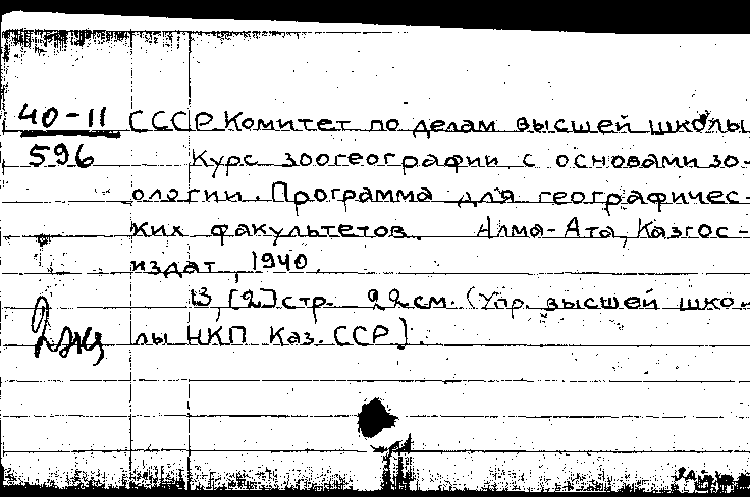 40-11 СССР. Комитет по делам высшей школы
596 Курс зоогеографии с основами зо-
ологии. Программа для географичес-
ких факультетов. Алма-Ата, Казгос-
издат, 1940.
13, [2] стр. 22 см. (Упр. высшей шко-
2экз лы НКП Каз. ССР].